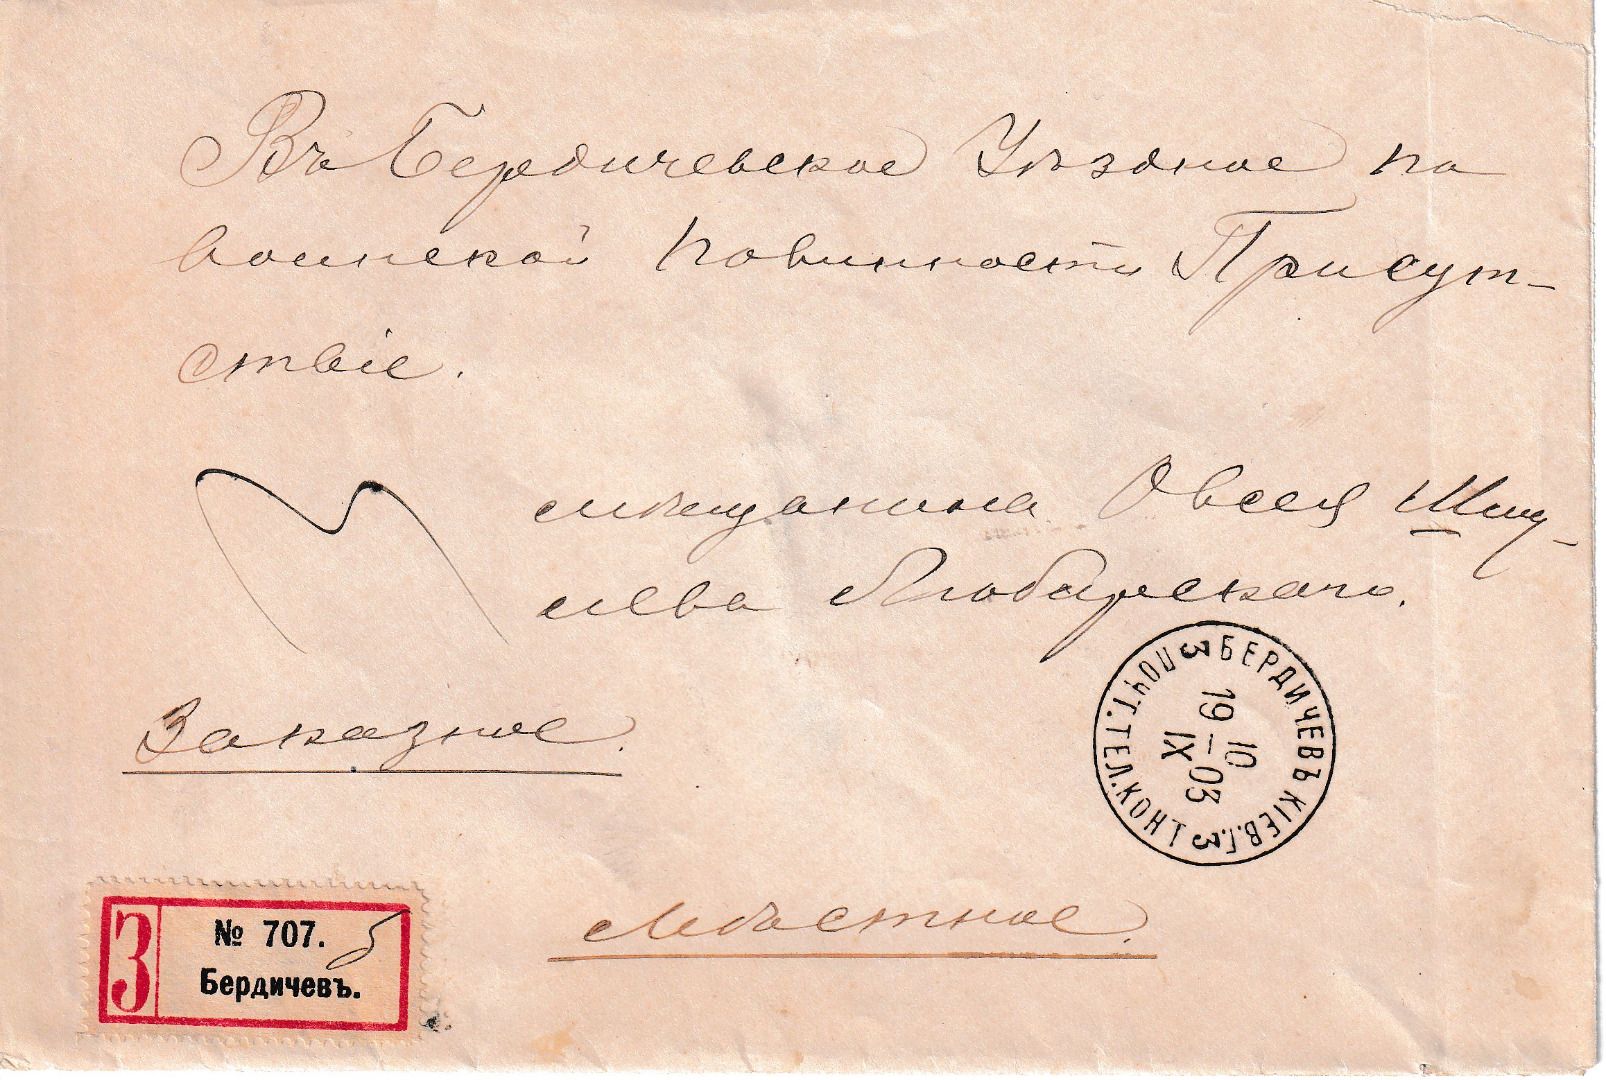 Въ Бердичевское Уѣздное по
воинской повинности Присут-
ствіе.
мѣщанина Овсея
Любарскаго.
Заказное.
БЕРДИЧЕВЪ КІЕВ.Г.
ПОЧТ.ТЕЛ.КОНТ
3 3
10
19 — 03
IX
Мѣстное.
З
№ 707.
Бердичевъ.